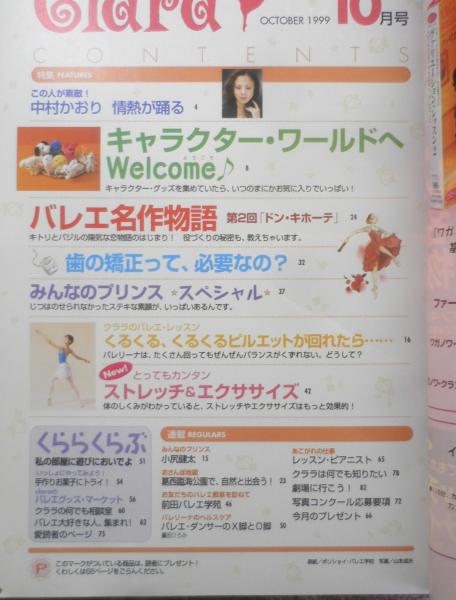 Clara
OCTOBER 1999
10月号
CONTENTS
特集 FEATURES
この人が素敵!
中村かおり 情熱が踊る 4
キャラクター・ワールドへ
Welcome♪ 8
ようこそ
キャラクター・グッズを集めていたら、いつのまにかお気に入りでいっぱい!
バレエ名作物語 第2回「ドン・キホーテ」 24
キトリとバジルの陽気な恋物語のはじまり! 役づくりの秘密も、教えちゃいます。
歯の矯正って、必要なの? 32
みんなのプリンス★スペシャル★ 37
じつはのせられなかったステキな素顔が、いっぱいあるんです。
クララのバレエ・レッスン
くるくる、くるくるピルエットが回れたら…… 16
バレリーナは、たくさん回ってもぜんぜんバランスがくずれない。どうして?
New! とってもカンタン
ストレッチ&エクササイズ 42
体のしくみがわかっていると、ストレッチやエクササイズはもっと効果的!
くららくらぶ
私の部屋に遊びにおいでよ 51
いっしょにやってみよう!
手作りお菓子にトライ! 54
バレエグッズ・マーケット 56
クララの何でも相談室 60
バレエ大好きな人、集まれ! 62
愛読者のページ 75
連載 REGULARS
みんなのプリンス
小尻健太 15
おさんぽ地図
葛西臨海公園で、自然と出会う! 23
お友だちのバレエ教室を訪ねて
前田バレエ学苑 46
バレリーナのヘルスケア
バレエ・ダンサーのX脚とO脚 50
あこがれの仕事
レッスン・ピアニスト 65
クララは何でも知りたい 78
劇場に行こう! 82
写真コンクール応募要項 72
今月のプレゼント 66
P
このマークがついている商品は、読者にプレゼント!
くわしくは66ページをごらんください。
表紙/ボリショイ・バレエ学校 写真/山本成夫